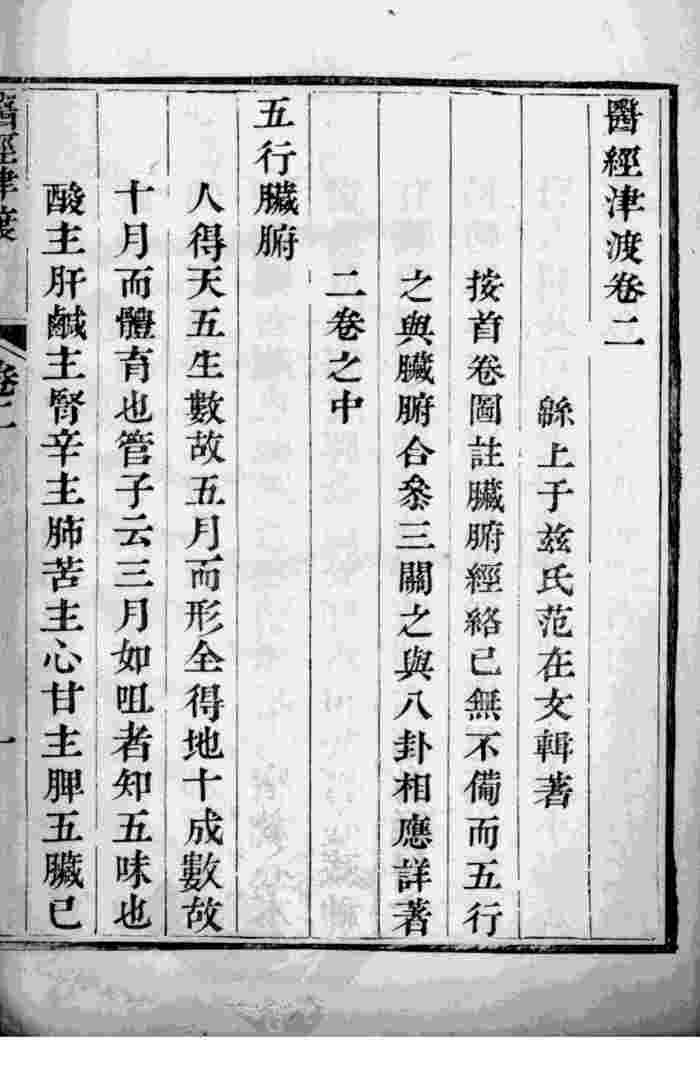 醫經津渡卷二
緜上于兹氏范在文輯著
按首卷圖註臟腑經絡已無不備而五行
之與臟腑合叅三關之與八卦相應詳著
二卷之中
五行臟腑
人得天五生數故五月而形全得地十成數故
十月而體育也管子云三月如咀者知五味也
酸主肝鹹主腎辛主肺苦主心甘主脾五臟已
醫經津渡
卷二
一